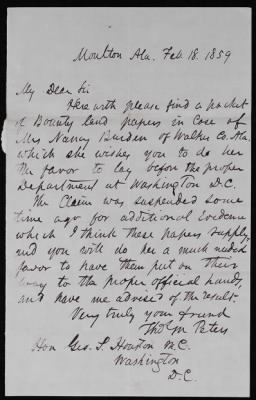 Moulton Ala. Feb 18. 1859
My Dear Sir
Herewith please find a packet
of Bounty land papers in Case of
Mrs Nancy Burden of Walker Co. Ala.
which she wishes you to do her
the favor to lay before the proper
Department at Washington D.C.
The Claim was suspended some
time ago for additional Evidence
which I think these papers supply,
and you will do her a much needed
favor to have them put on their
way to the proper official hands,
and have me advised of the result.
Very truly your friend
Thos M Peters
Hon Geo. S. Houston M.C.
Washington
D.C.